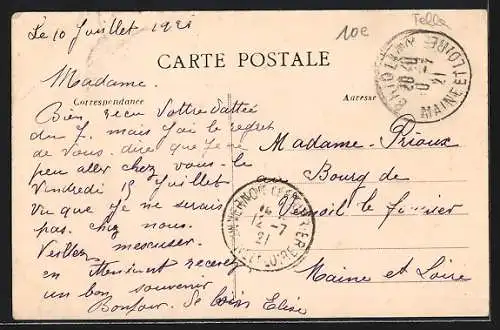 Le 10 Juillet 1921
10e
Fella
CARTE POSTALE
MAINE ET LOIRE
Madame.
Correspondance
Adresse
Bien recu Vottre
du 7. mais j'ai le regret
de vous dire que je ne
peu aller chez vous le
Vendredi 15 Juillet
vu que je ne serais
pas chez nous.
Veillez mescuser.
en attendant recevez
un bon souvenir
Bonjour de loin Elise
Madame Prioux
au Bourg de
Vernoil le fourrier
Maine et Loire
12-7
21